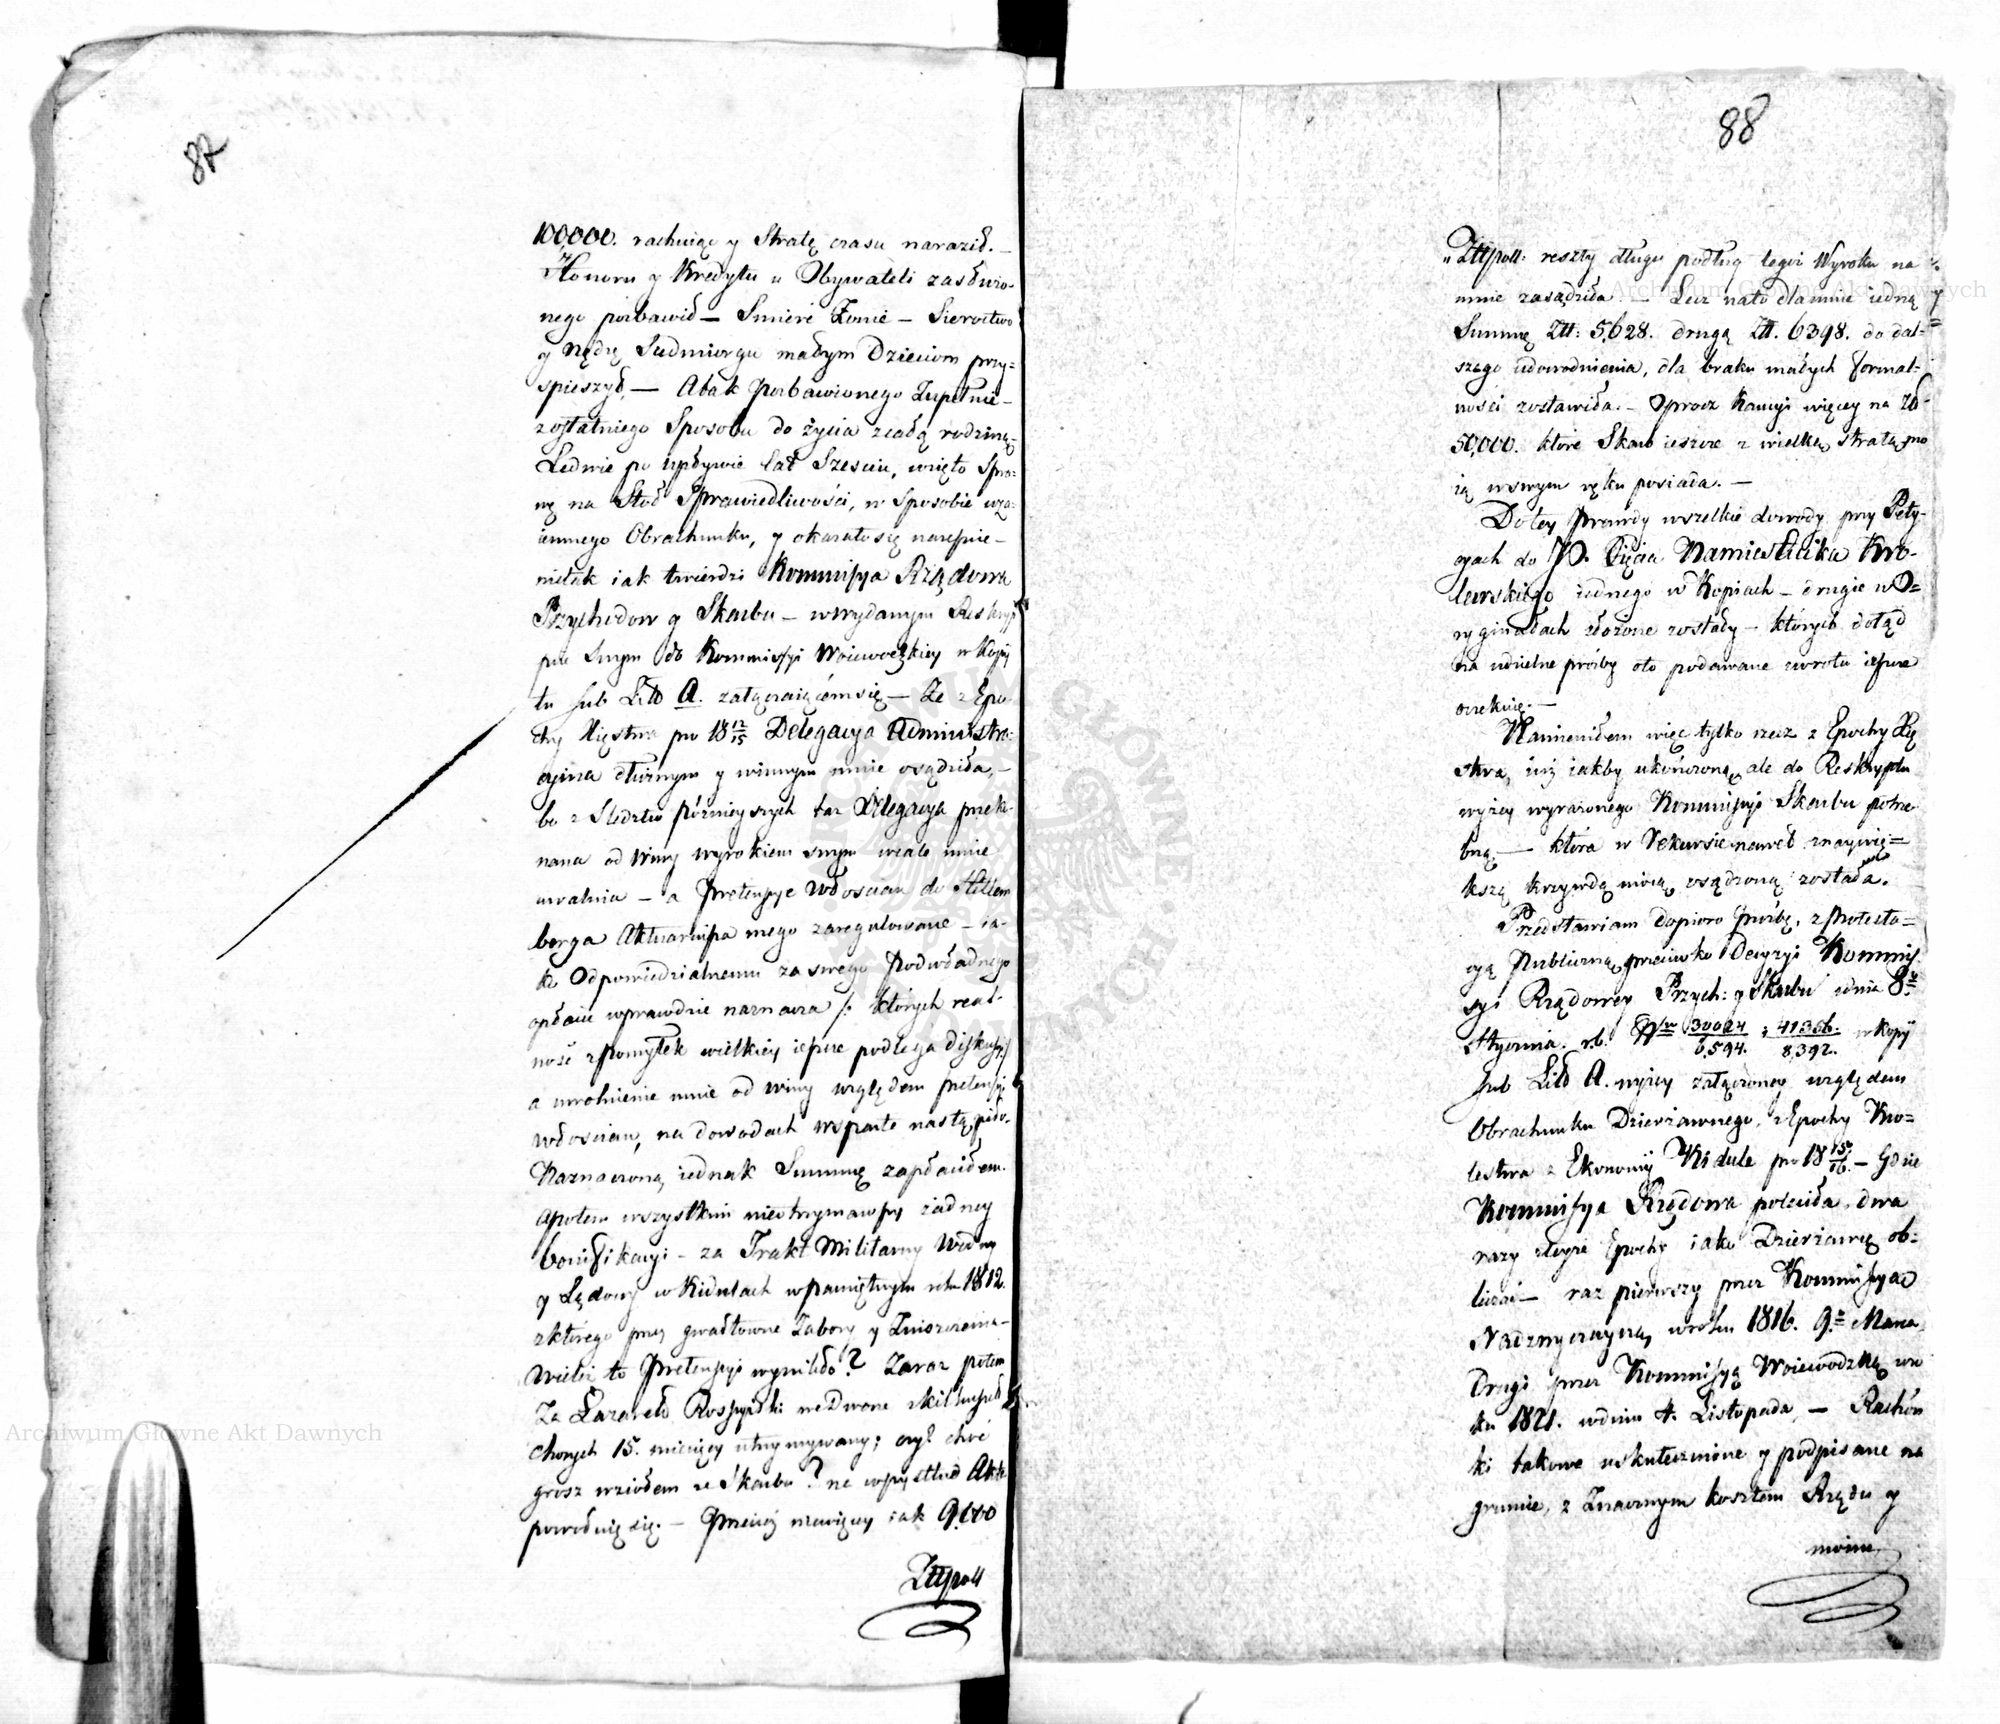 87
100,000. rachuiąc y Stratę czasu naraził. —
Honoru y Kredytu u Obywateli zasłużo-
nego pozbawił — Smierć Żonie — Sieroctwo
y Nędzę Siedmiorgu małym Dzieciom przy=
spieszył, — A tak pozbawionego Zupełnie —
zostatniego Sposobu do życia zcałą rodziną —
Ledwie po upływie lat Sześciu, wzięto Spra-
wę na Stoł Sprawiedliwości, w Sposobie wza-
iemnego Obrachunku, y okazało się
iak twierdzi Kommissya Rządowa
Przychodow y Skarbu — wwydanym Reskryp
cie Swym do Kommissyi Woiewodzkiey w Kopii
tu sub Litt A. załączaiącém się — Że z Epo-
chy Xięstwa pro 18 12/15 Delegacya Administra-
cyina dłużnym y winnym mnie osądziła, —
bo z Sledztw poźnieyszych taż Delegacya przeko-
nana od Winy wyrokiem swym wcale mnie
uwalnia — a Pretensye Włościan do Hillem
berga Aktuariusza mego zaregulowane — ia-
ko Odpowiedzialnemu za swego Podwładnego
opłacić wprawdzie naznacza /: ktorych real-
ność z pomyłek wielkiey ieszcze podlega dyskussyi :/
a uwolnienie mnie od winy względem pretensyi
włościan, na dowodach wsparte nastąpiło.
Naznaczoną iednak Summę zapłaciłem.
a potem wszystkim nieotrzymawszy żadney
bonifikacyi — za Trakt Militarny Wodny
y Lądowy w Kidulach wpamiętnym roku 1812.
z którego przez gwałtowne Zabory y Zniszczenia —
Wieleż to Pretensyi wynikło? Zaraz potem
Za Lazaret Rossyiski
Chorych 15. miesięcy utrzymywany; czyż choć
grosz wziołem ze Skarbu? na wszystko Akta
powołuię się. — Przecież niewięcey iak 9,000
Ztłpoll
88
„Ztłpoll: reszty długu podług tegoż Wyroku na
mnie zasądziła. — Lecz nato dla mnie iedną
Summę Ztł: 5,628. drugą Ztł. 6348. do dal=
szego udowodnienia, dla braku małych formal=
ności zostawiła. — Oprocz Kaucyi więcey na Zł
50,000. które Skarb ieszcze z wielką stratą mo
ią wswym ręku posiada. —
Do tey Prawdy wszelkie dowody przy Pety-
cyach do JO. Xięcia Namiestnika Kro-
lewskiego iednego w Kopiach — drugie w O=
ryginałach złożone zostały — których dotąd
na udzielne prośby oto podawane zwrotu ieszcze
oczekuię. —
Namieniłem więc tylko rzecz z Epochy Xię
stwa, iuż iakby ukończoną, ale do Reskryptu
wyżey wyrażonego Kommissyi Skarbu potrze
bną, — która w Rekursie nawet z naywię=
kszą krzywdą moią osądzoną została.
Przedstawiam dopiero prośbę, z Protesta=
cyą Publiczną, przeciwko Decyzyi Kommis
syi Rządowey Przych: y Skarbu zdnia 8º
Stycznia. r.b. Nro 30024/6,594. i 41366./8,392. w Kopii
sub Litt A. wyżey załączoney względem
Obrachunku Dzierżawnego, z Epochy Kro=
lestwa z Ekonomii Kidule pro 18 15/16. — Gdzie
Kommissya Rządowa poleciła, dwa
razy z teyże Epochy iako Dzierżawcę ob=
liczać — raz pierwszy przez Kommissyą
Nadzwyczayną, wroku 1816. 9º Marca,
Drugi przez Kommissyą Woiewodzką wro
ku 1821. wdniu 4. Listopada, — Rachón
ki takowe uskutecznione y podpisane na
gruncie, z Znacznym kosztem Rządu y
moim
Archiwum Główne Akt Dawnych
Archiwum Główne Akt Dawnych